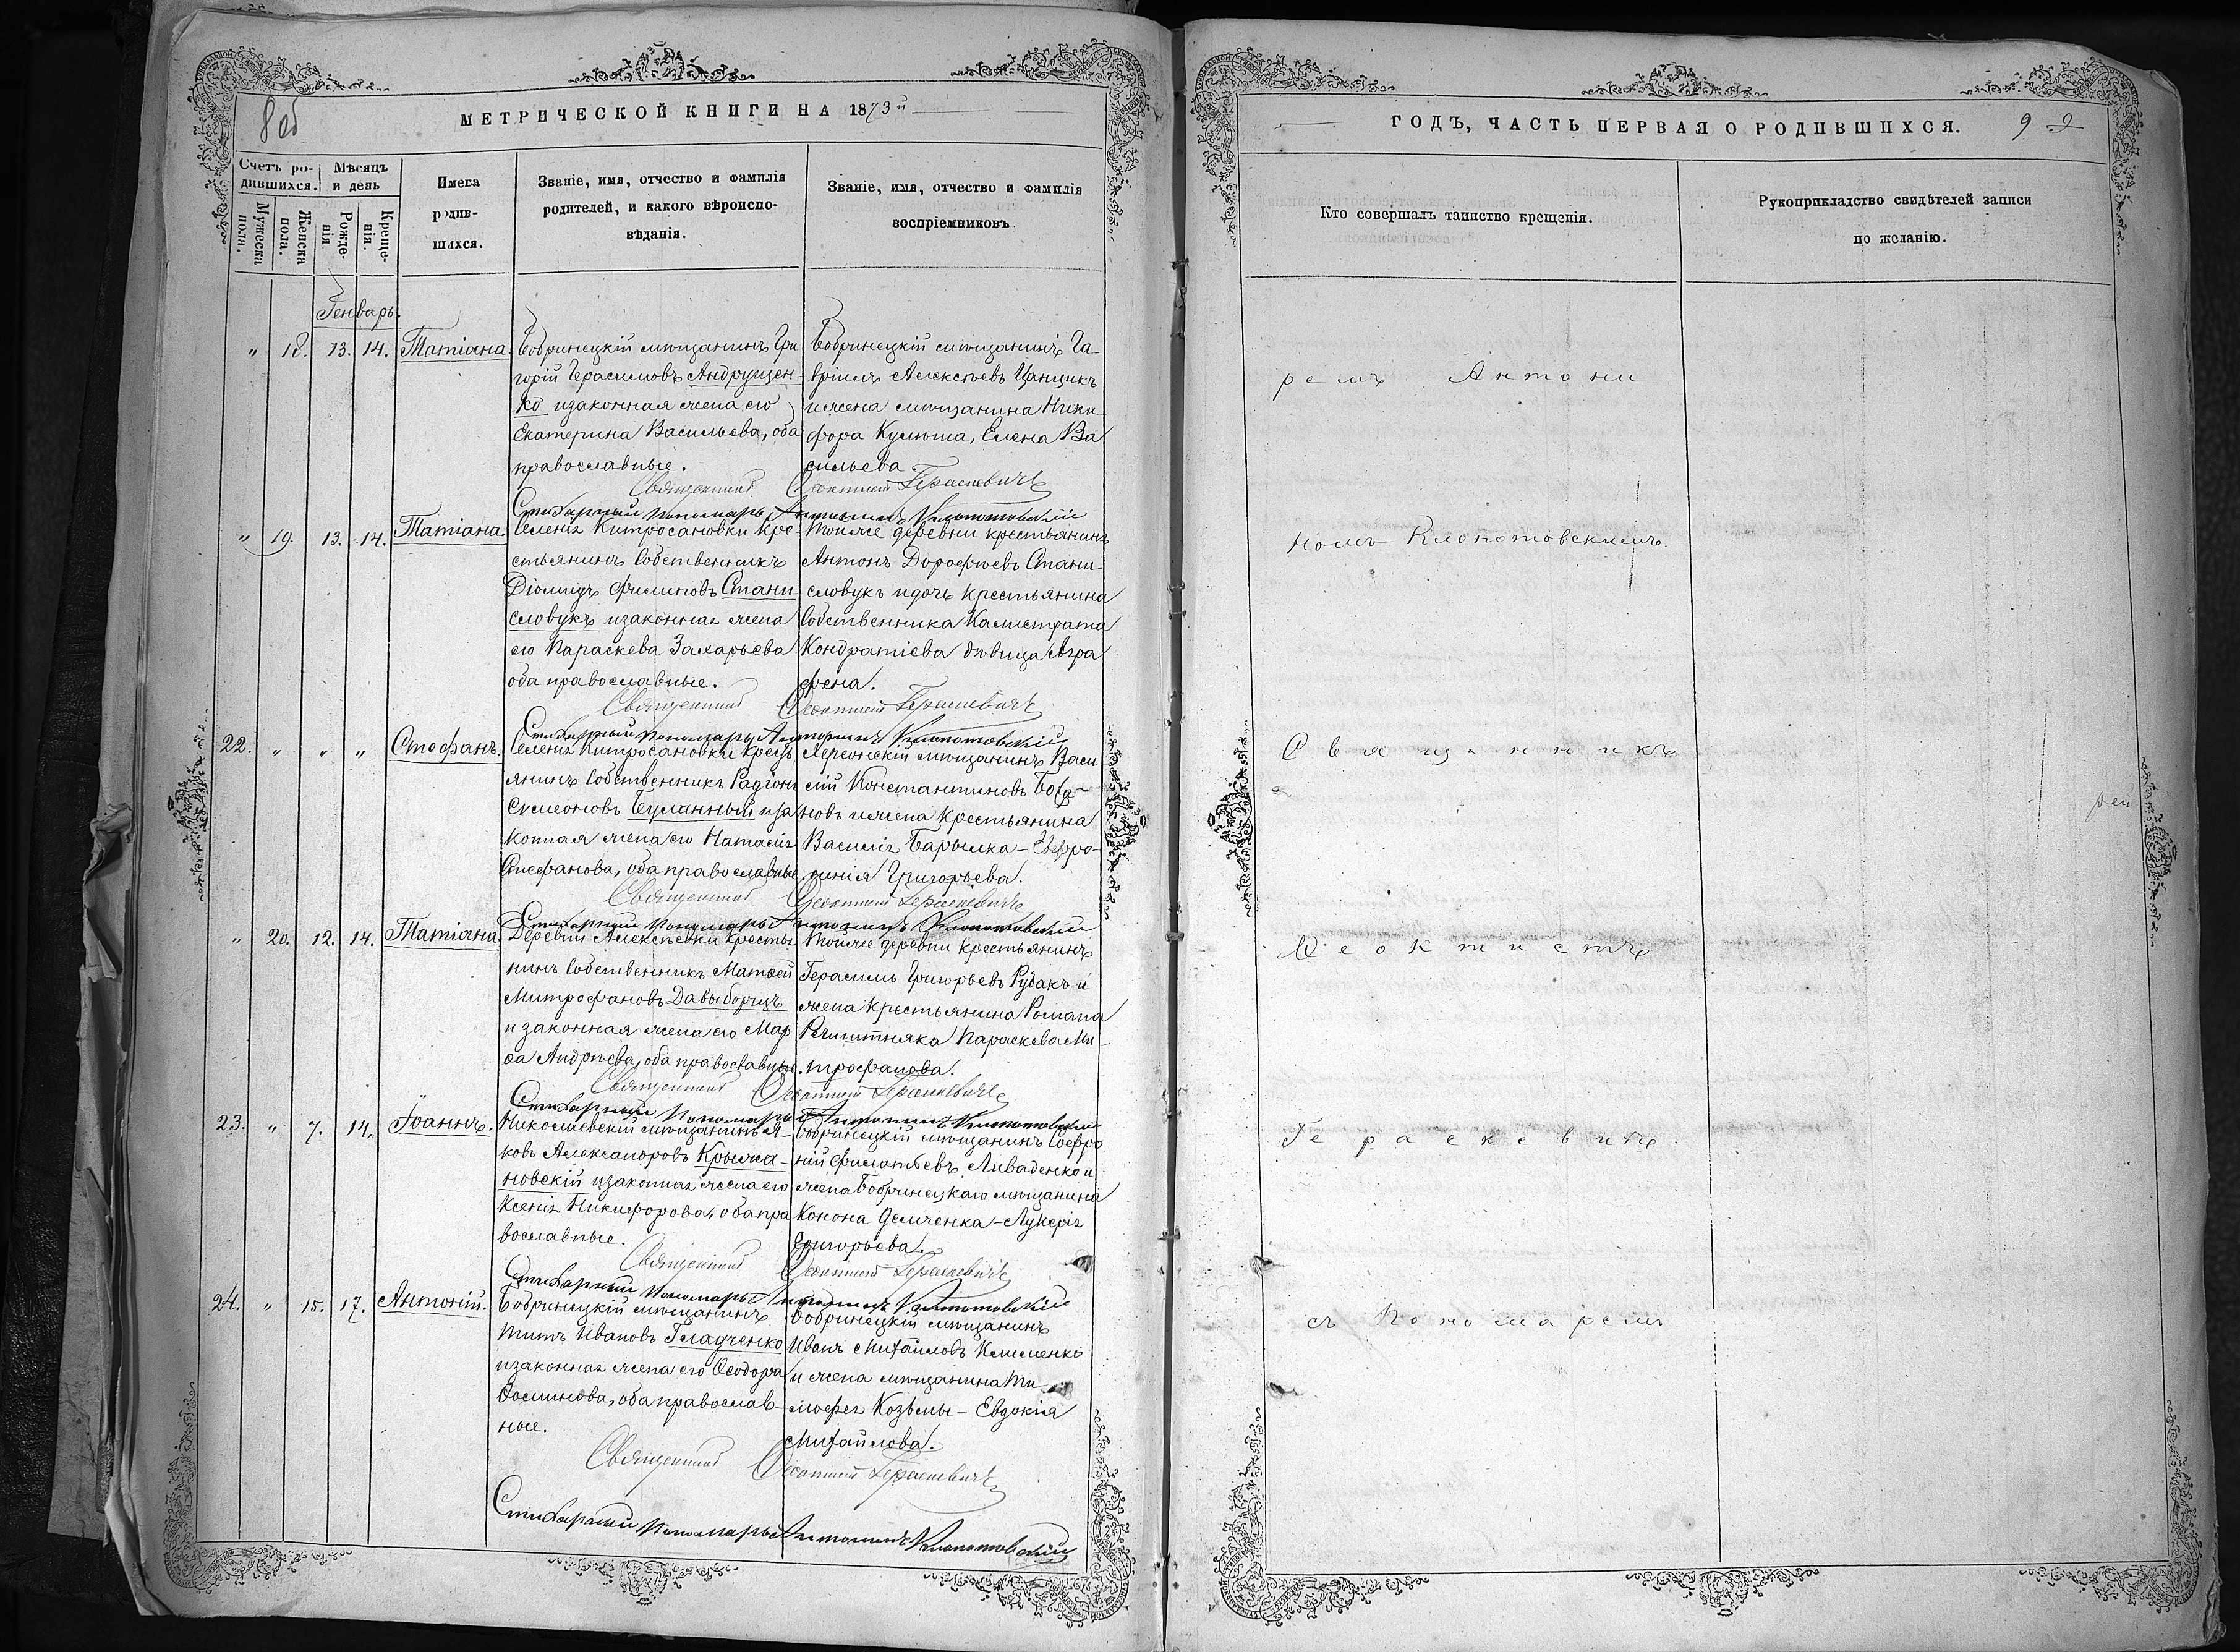 8 об
МЕТРИЧЕСКОЙ КНИГИ НА 1873й
Счетъ ро-
дившихся.
Мѣсяцъ
и день
Мужеска
полн.
Женска
пола.
Рожде-
нія
Креще-
нія.
Имена
родив-
шихся.
Званіе, имя, отчество и фамилія
родителей, и какого вѣроиспо-
вѣданія.
Званіе, имя, отчество и фамилія
воспріемниковъ
Генварь.
" 18. 13. 14. Татіана.
Бобринецкій мѣщанинъ Гри
горій Герасимовъ Андрущен-
ко и законная жена его
Екатерина Васильева, оба
православные.
Бобринецкій мѣщанинъ Га-
вріилъ Алексѣевъ Цанцикъ
и жена мѣщанина Ники-
фора Кулиша, Елена Ва
сильева.
Священникъ Ѳеоктистъ Гераскевичъ
Стихарный Пономарь Антонинъ Клопотовскій
" 19. 13. 14. Татіана.
Селенія Китросановки Кре-
стьянинъ Собственникъ
Діомидъ Филиповъ Стани
словукъ и законная жена
его Параскева Захарьева
оба православные.
Тойже деревни крестьянинъ
Антонъ Дорофѣевъ Стани-
словукъ и дочь крестьянина
Собственника Калистрата
Кондратіева дѣвица Агра
фена.
Священникъ Ѳеоктистъ Гераскевичъ
Стихарный Пономарь Антонинъ Клопотовскій
22. " " " Стефанъ.
Селенія Китросановки Кресть
янинъ Собственникъ Радіонъ
Симеоновъ Буланный и за
конная жена его Наталія
Стефанова, оба православные.
Херсонскій мѣщанинъ Васи
лій Константиновъ
новъ и жена Крестьянина
Василія Барылка - Евфро-
синія Григорьева.
Священникъ Ѳеоктистъ Гераскевичъ
Стихарный Пономарь Антонинъ Клопотовскій
" 20. 12. 14. Татіана
Деревни Алексѣевки Крестья
нинъ Собственникъ Матѳей
Митрофановъ Давыборщъ
и законная жена его Мар
ѳа Андреева, оба православны.
Тойже деревни крестьянинъ
Герасимъ Григорьевъ Рубакъ и
жена крестьянина Романа
Параскева Ми-
трофанова.
Священникъ Ѳеоктистъ Гераскевичъ
Стихарный Пономарь Антонинъ Клопотовскій
23. " 7. 14. Іоаннъ.
Николаевскій мѣщанинъ Я-
ковъ Александровъ Крыжа-
новскій и законная жена его
Ксенія Никифорова, оба пра
вославные.
Бобринецкій мѣщанинъ Софро
ній Филатьевъ Ливаденко и
жена Бобринецкаго мѣщанина
Конона Демченка - Лукерія
Григорьева.
Священникъ Ѳеоктистъ Гераскевичъ
Стихарный Пономарь Антонинъ Клопотовскій
24. " 15. 17. Антоній.
Бобринецкій мѣщанинъ
Титъ Ивановъ Гладченко
и законная жена его Ѳеодора
Ѳоминова, оба православ-
ные.
Бобринецкій мѣщанинъ
Иванъ Михаиловъ Клименко
и жена мѣщанина Ти-
мофея Козьмы - Евдокія
Михайлова.
Священникъ Ѳеоктистъ Гераскевичъ
Стихарный Пономарь Антонинъ Клопотовскій
ГОДЪ, ЧАСТЬ ПЕРВАЯ О РОДИВШИХСЯ. 9 9
Кто совершалъ таинство крещенія.
Рукоприкладство свидѣтелей записи
по желанію.
ремъ Антони
номъ Клопотовскимъ.
Священникъ
Ѳеоктистъ
Гераскевичъ.
съ Пономаремъ